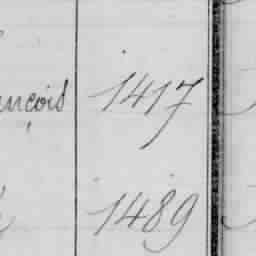 ançois 1417
1489